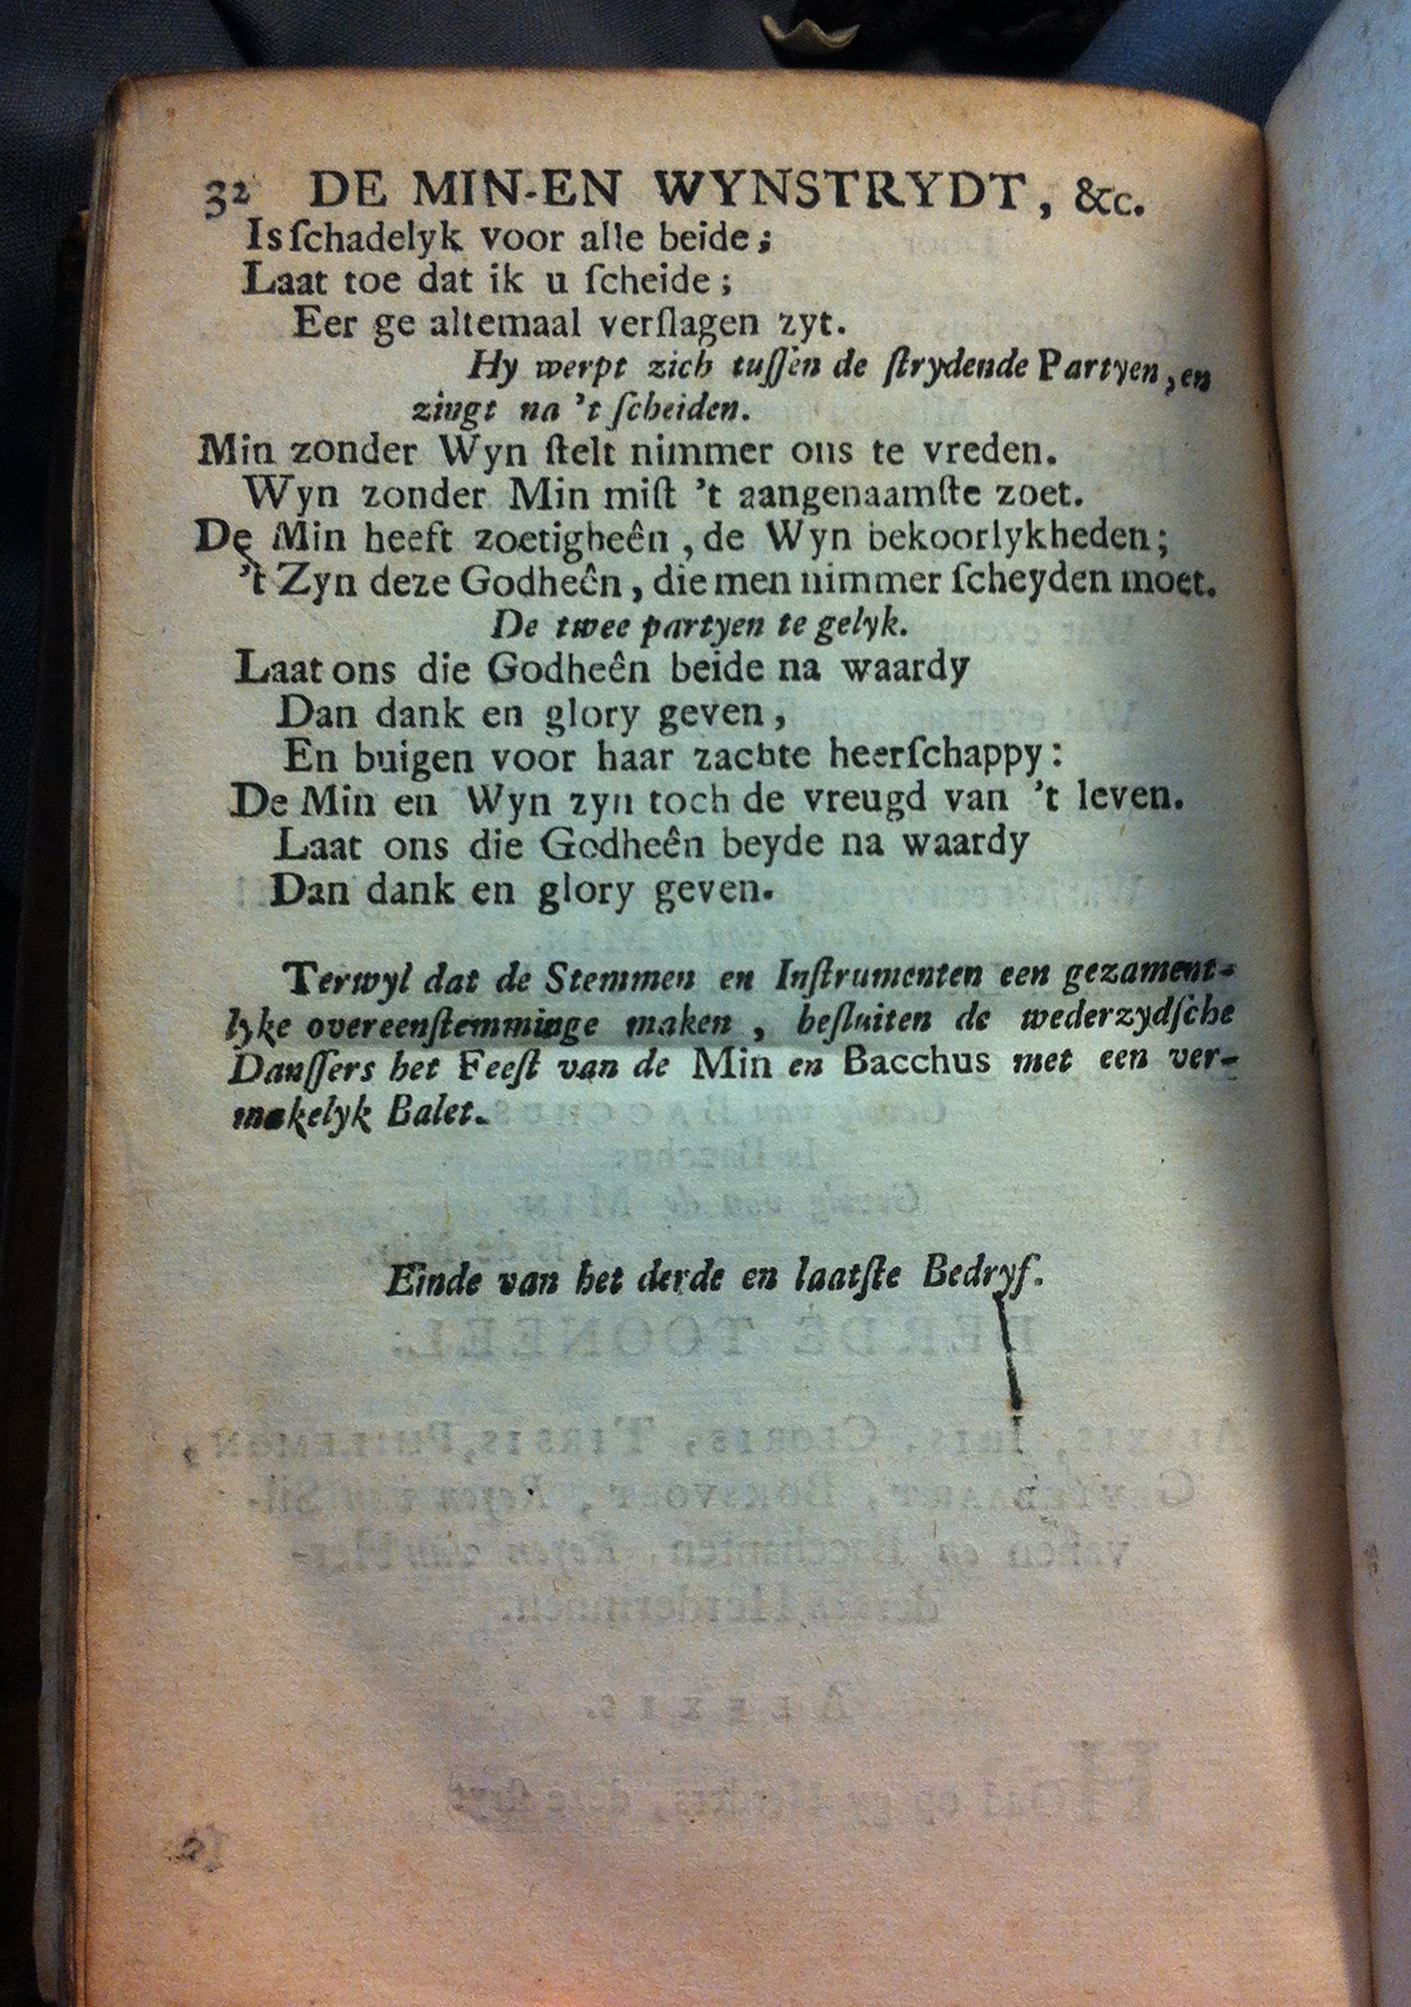 32 DE MIN-EN WYNSTRYDT, &c.
Is ſchadelyk voor alle beide;
Laat toe dat ik u ſcheide;
Eer ge altemaal verſlagen zyt.
Hy werpt zich tuſſen de ſtrydende Partyen, en
zingt na 't ſcheiden.
Min zonder Wyn ſtelt nimmer ons te vreden.
Wyn zonder Min miſt 't aangenaamſte zoet.
De Min heeft zoetigheên, de Wyn bekoorlykheden;
't Zyn deze Godheên, die men nimmer ſcheyden moet.
De twee partyen te gelyk.
Laat ons die Godheên beide na waardy
Dan dank en glory geven,
En buigen voor haar zachte heerſchappy:
De Min en Wyn zyn toch de vreugd van 't leven.
Laat ons die Godheên beyde na waardy
Dan dank en glory geven.
Terwyl dat de Stemmen en Inſtrumenten een gezament-
lyke overeenſtemminge maken, beſluiten de wederzydſche
Danſſers het Feeſt van de Min en Bacchus met een ver-
makelyk Balet.
Einde van het derde en laatſte Bedryf.